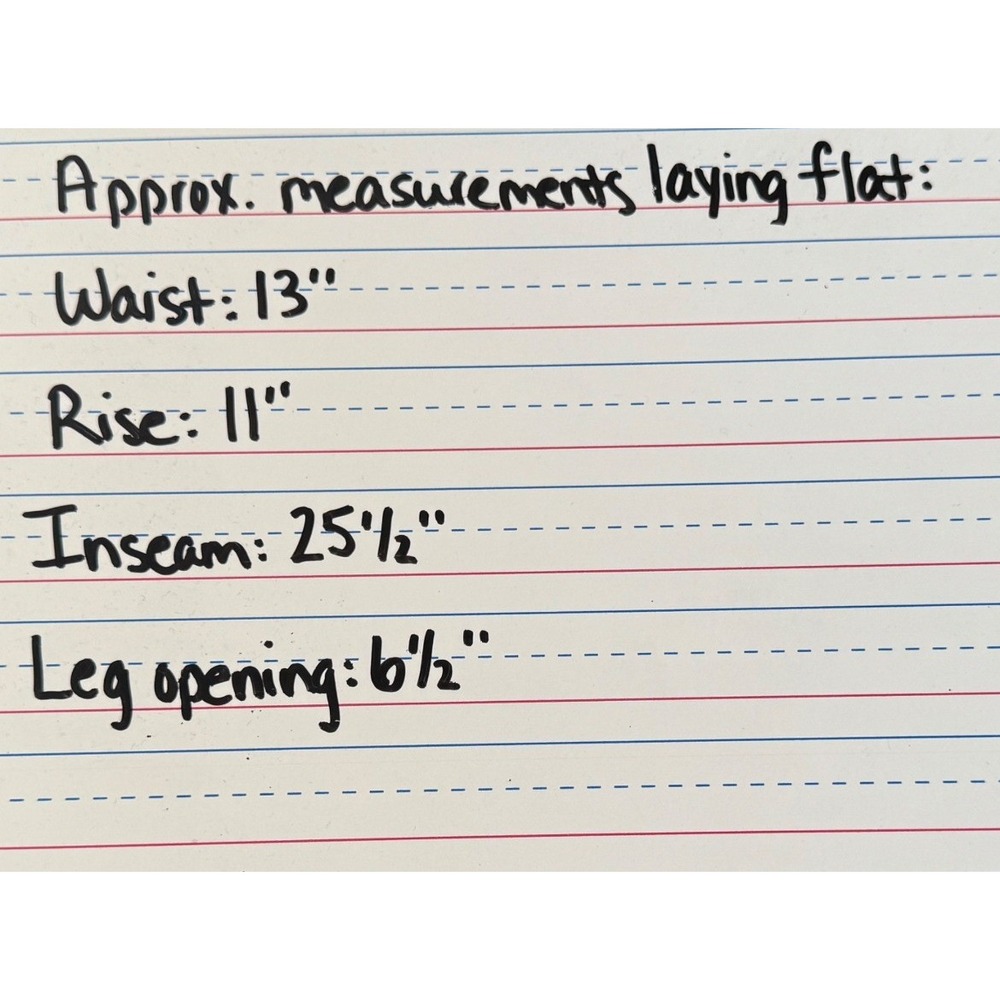 Approx. measurements laying flat:
Waist: 13"
Rise: 11"
Inseam: 25 1/2"
Leg opening: 6 1/2"